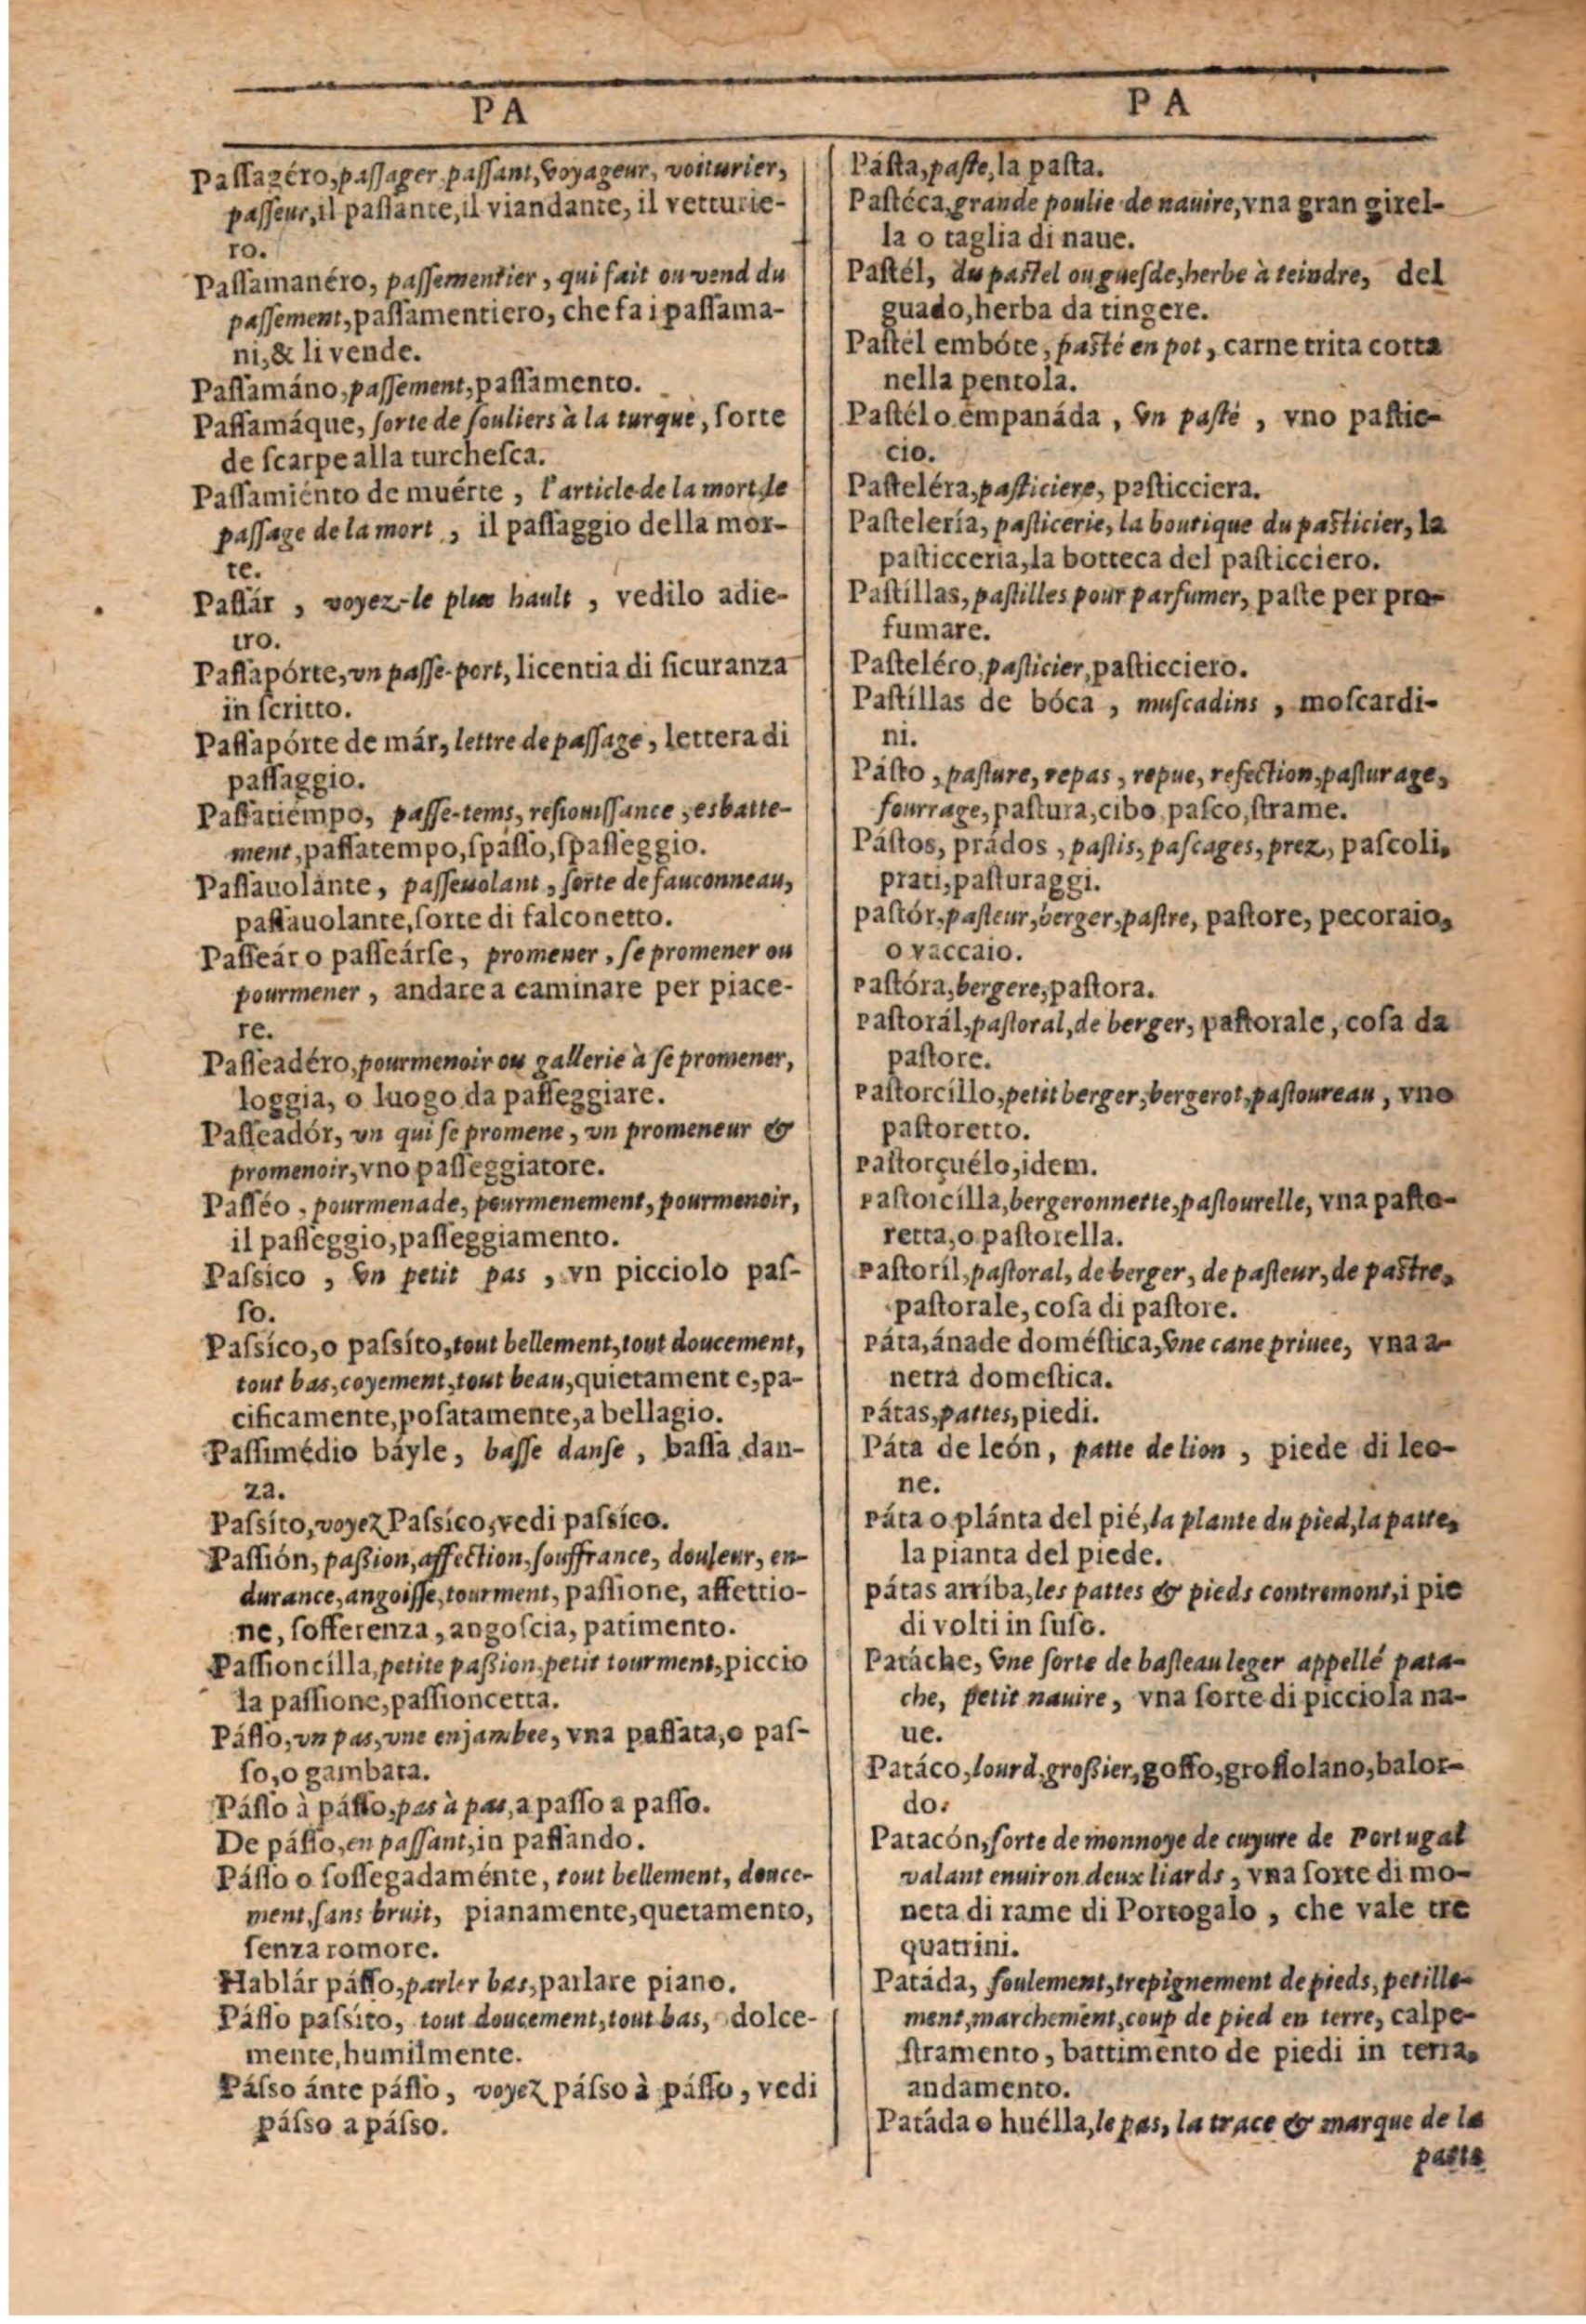 PA
Paſſagéro, paſſager, paſſant, voyageur, voiturier,
paſſeur, il paſſante, il viandante, il vetturie-
ro.
Paſſamanéro, paſſementier, qui fait ou vend du
paſſement, paſſamentiero, che fa i paſſama-
ni, & li vende.
Paſſamáno, paſſement, paſſamento.
Paſſamáque, ſorte de ſouliers à la turque, ſorte
de ſcarpe alla turcheſca.
Paſſamiénto de muérte, l'article de la mort, le
paſſage de la mort, il paſſaggio della mor-
te.
Paſſár, voyez-le plus hault, vedilo adie-
tro.
Paſſapórte, vn paſſe-port, licentia di ſicuranza
in ſcritto.
Paſſapórte de már, lettre de paſſage, lettera di
paſſaggio.
Paſſatiémpo, paſſe-tems, resiouiſſance, esbatte-
ment, paſſatempo, ſpaſſo, ſpaſſeggio.
Paſſauolánte, paſſeuolant, ſorte de fauconneau,
paſſauolante, ſorte di falconetto.
Paſſeár o paſſeárſe, promener, ſe promener ou
pourmener, andare a caminare per piace-
re.
Paſſeadéro, pourmenoir ou gallerie à ſe promener,
loggia, o luogo da paſſeggiare.
Paſſeadór, vn qui ſe promene, vn promeneur &
promenoir, vno paſſeggiatore.
Paſſéo, pourmenade, pourmenement, pourmenoir,
il paſſeggio, paſſeggiamento.
Paſsico, vn petit pas, vn picciolo paſ-
ſo.
Paſsíco, o paſsíto, tout bellement, tout doucement,
tout bas, coyement, tout beau, quietamente, pa-
cificamente, poſatamente, a bellagio.
Paſſimédio báyle, baſſe danſe, baſſa dan-
za.
Paſsíto, voyez Paſsico, vedi paſsíco.
Paſſión, paßion, affection, ſouffrance, douleur, en-
durance, angoiſſe, tourment, paſſione, affettio-
ne, ſofferenza, angoſcia, patimento.
Paſſioncilla, petite paßion, petit tourment, piccio
la paſſione, paſſioncetta.
Páſſo, vn pas, vne enjambee, vna paſſata, o paſ-
ſo, o gambata.
Páſſo à páſſo, pas à pas, a paſſo a paſſo.
De páſſo, en paſſant, in paſſando.
Páſſo o ſoſſegadaménte, tout bellement, douce-
ment, ſans bruit, pianamente, quetamento,
ſenza romore.
Hablár páſſo, parler bas, parlare piano.
Páſſo paſsito, tout doucement, tout bas, dolce-
mente, humilmente.
Páſso ánte páſſo, voyez páſso à páſſo, vedi
páſso a páſso.
PA
Pásta, paſte, la paſta.
Paſtéca, grande poulie de nauire, vna gran girel-
la o taglia di naue.
Paſtél, du paſtel ou gueſde, herbe à teindre, del
guado, herba da tingere.
Paſtél embóte, paſté en pot, carne trita cotta
nella pentola.
Paſtél o empanáda, vn paſté, vno paſtic-
cio.
Paſteléra, paſticiere, paſticciera.
Paſtelería, paſticerie, la boutique du paſticier, la
paſticceria, la botteca del paſticciero.
Paſtíllas, paſtilles pour parfumer, paſte per pro-
fumare.
Paſteléro, paſticier, paſticciero.
Paſtíllas de bóca, muſcadins, moſcardi-
ni.
Páſto, paſture, repas, repue, refection, paſturage,
fourrage, paſtura, cibo, paſco, ſtrame.
Páſtos, prádos, paſtis, paſcages, prez, paſcoli,
prati, paſturaggi.
paſtór, paſteur, berger, paſtre, paſtore, pecoraio,
o vaccaio.
paſtóra, bergere, paſtora.
paſtorál, paſtoral, de berger, paſtorale, coſa da
paſtore.
paſtorcíllo, petit berger, bergerot, paſtoureau, vno
paſtoretto.
paſtorçuélo, idem.
paſtorcilla, bergeronnette, paſtourelle, vna paſto-
retta, o paſtorella.
paſtoríl, paſtoral, de berger, de paſteur, de paſtre,
paſtorale, coſa di paſtore.
páta, ánade doméſtica, vne cane priuee, vna a-
netra domeſtica.
pátas, pattes, piedi.
Páta de león, patte de lion, piede di leo-
ne.
páta o plánta del pié, la plante du pied, la patte,
la pianta del piede.
pátas arriba, les pattes & pieds contremont, i pie
di volti in ſuſo.
Patáche, vne ſorte de baſteau leger appellé pata-
che, petit nauire, vna ſorte di picciola na-
ue.
Patáco, lourd, großier, goffo, groſſolano, balor-
do.
Patacón, ſorte de monnoye de cuyure de Portugal
valant enuiron deux liards, vna ſorte di mo-
neta di rame di Portogalo, che vale tre
quattrini.
Patáda, foulement, trepignement de pieds, petille-
ment, marchement, coup de pied en terre, calpe-
ſtramento, battimento de piedi in terra,
andamento.
Patáda o huélla, le pas, la trace & marque de la
patte